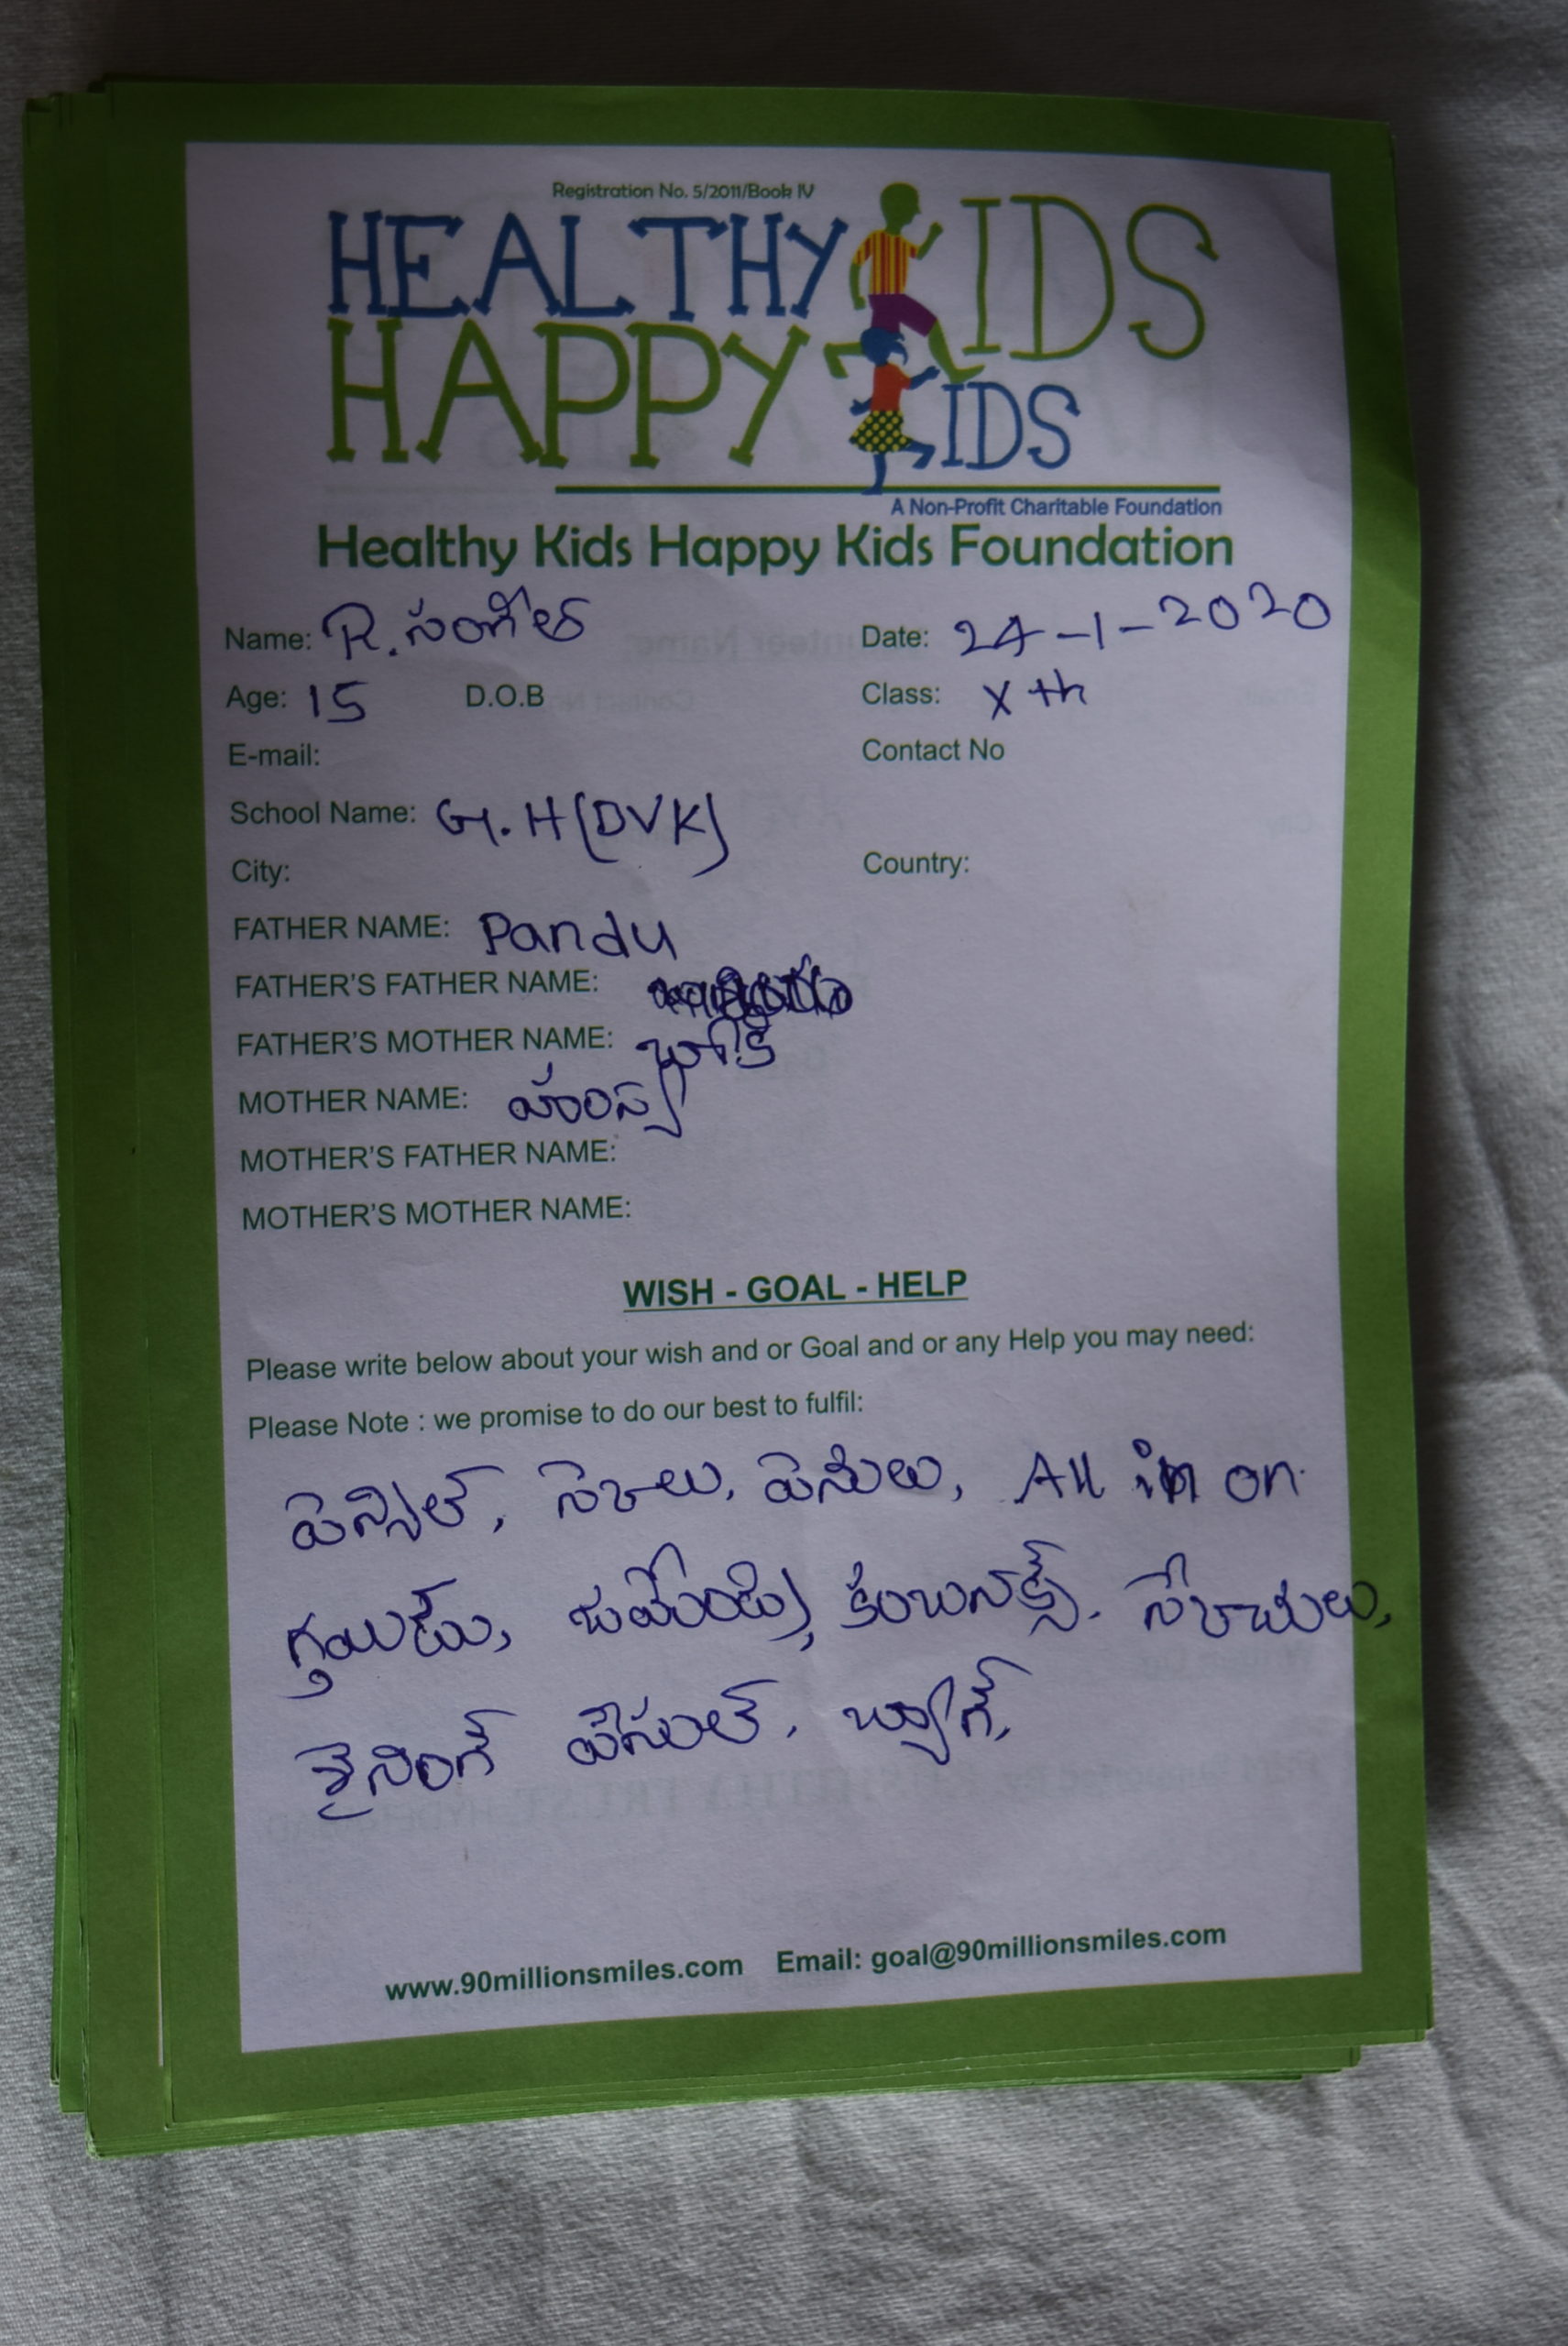 Registration No. 5/2011/Book IV
HEALTHY KIDS
HAPPY KIDS
A Non-Profit Charitable Foundation
Healthy Kids Happy Kids Foundation
Name: R. సంగీత్ Date: 24-1-2020
Age: 15 D.O.B Class: Xth
E-mail: Contact No
School Name: G.H(DVK)
City: Country:
FATHER NAME: Pandu
FATHER'S FATHER NAME:
FATHER'S MOTHER NAME:
MOTHER NAME: హంస
MOTHER'S FATHER NAME:
MOTHER'S MOTHER NAME:
WISH - GOAL - HELP
Please write below about your wish and or Goal and or any Help you may need:
Please Note : we promise to do our best to fulfil:
పెన్సిల్, పెనులు, All in on
బ్యాగ్,
www.90millionsmiles.com Email: goal@90millionsmiles.com